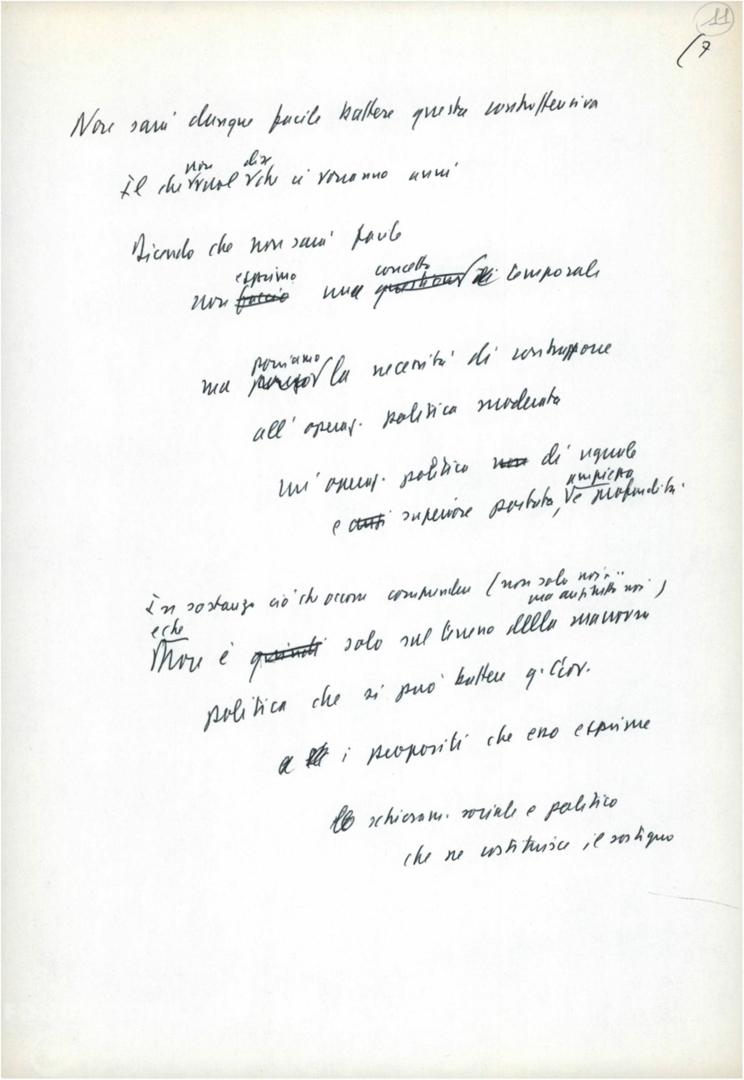 11
(7
Non sarà dunque facile battere questa controffensiva
Il che non vuol dire che ci vorranno anni
Dicendo che non sarà facile
non esprimo una concetto temporale
ma poniamo la necessità di contrapporre
all'operaz. politica moderata
un'operaz. politica di uguale
e superiore portata, ampiezza e profondità.
In sostanza ciò che occorre comprendere (non solo noi
ma anzitutto noi)
e che
Non è solo sul terreno della manovra
politica che si può battere q.
i propositi che esso esprime
lo schieram. sociale e politico
che ne costituisce il sostegno